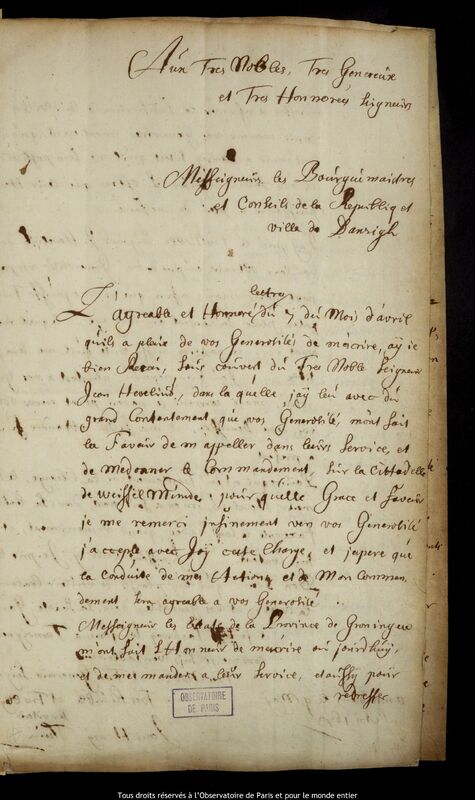 Aux Tres Nobles, Tres Genereux
et Tres Honnorés Seigneurs
Messeigneurs les Bourguemaistres
et Conseils de la Republiq et
ville de Danzigh
lettre
L'agreable et Honnoré du 7 du Mois d'avril
quils a pleut de vos Generosités de m'ecrire, ay ie
bien Receu, sous couvert du Tres Noble Seigneur
Jean Hevelius, dans la quelle jay leu avec du
grand Contentement que vos Generosité, m'ont fait
la Faveur de m'appeller dans leurs service, et
de me donner le Commandement, sur la Cittadelle
de Weissel Munde, pour quelle Grace et faveur
je me remerci infinement vers vos Generosité
j'accepte avec Joÿ cette Charge, et j'espere que
la Conduite de mes Actions et de Mon Commen
dement sera agreable a vos Generosité.
Messeigneur les Estats de la Province de Groningue
m'ont fait l'Honneur de m'ecrire au jourdhuÿ,
et de me mander a leur service, et aussy pour
redresser
OBSERVATOIRE
DE PARIS
Tous droits réservés à l'Observatoire de Paris et pour le monde entier